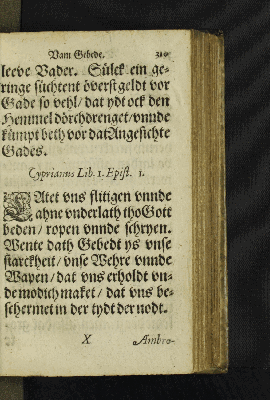 Vam Gebede. 310
leeve Vader. Sülck ein ge-
ringe süchtent överst geldt vor
Gade so vehl / dat ydt ock den
Hemmel dörchdrenget / vnnde
kümpt beth vor dat Angesichte
Gades.
Cyprianus Lib. 1. Epist. 1.
LAtet vns flitigen vnnde
ahne vnderlath tho Gott
beden / ropen vnnde schryen.
Wente dath Gebedt ys vnse
starckheit / vnse Wehre vnnde
Wapen / dat vns erholdt vn-
de modich maket / dat vns be-
schermet in der tydt der nodt.
X Ambro-